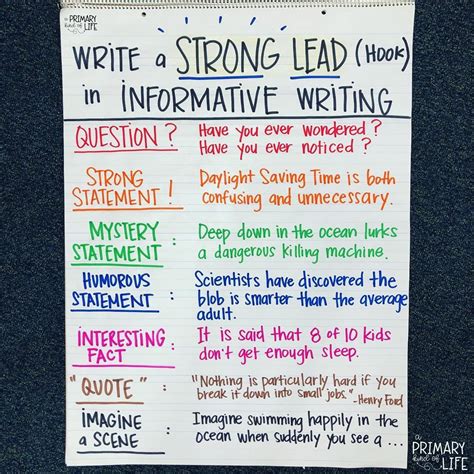 a PRIMARY
kind of LIFE
WRITE a STRONG LEAD (HOOK)
in INFORMATIVE WRITING
QUESTION? Have you ever wondered?
Have you ever noticed?
STRONG STATEMENT! Daylight Saving Time is both
confusing and unnecessary.
MYSTERY STATEMENT: Deep down in the ocean lurks
a dangerous killing machine.
HUMOROUS STATEMENT: Scientists have discovered the
blob is smarter than the average
adult.
INTERESTING FACT: It is said that 8 of 10 kids
don't get enough sleep.
"QUOTE": "Nothing is particularly hard if you
break it down into small jobs."
-Henry Ford
IMAGINE a SCENE: Imagine swimming happily in the
ocean when suddenly you see a ...
a PRIMARY
kind of LIFE